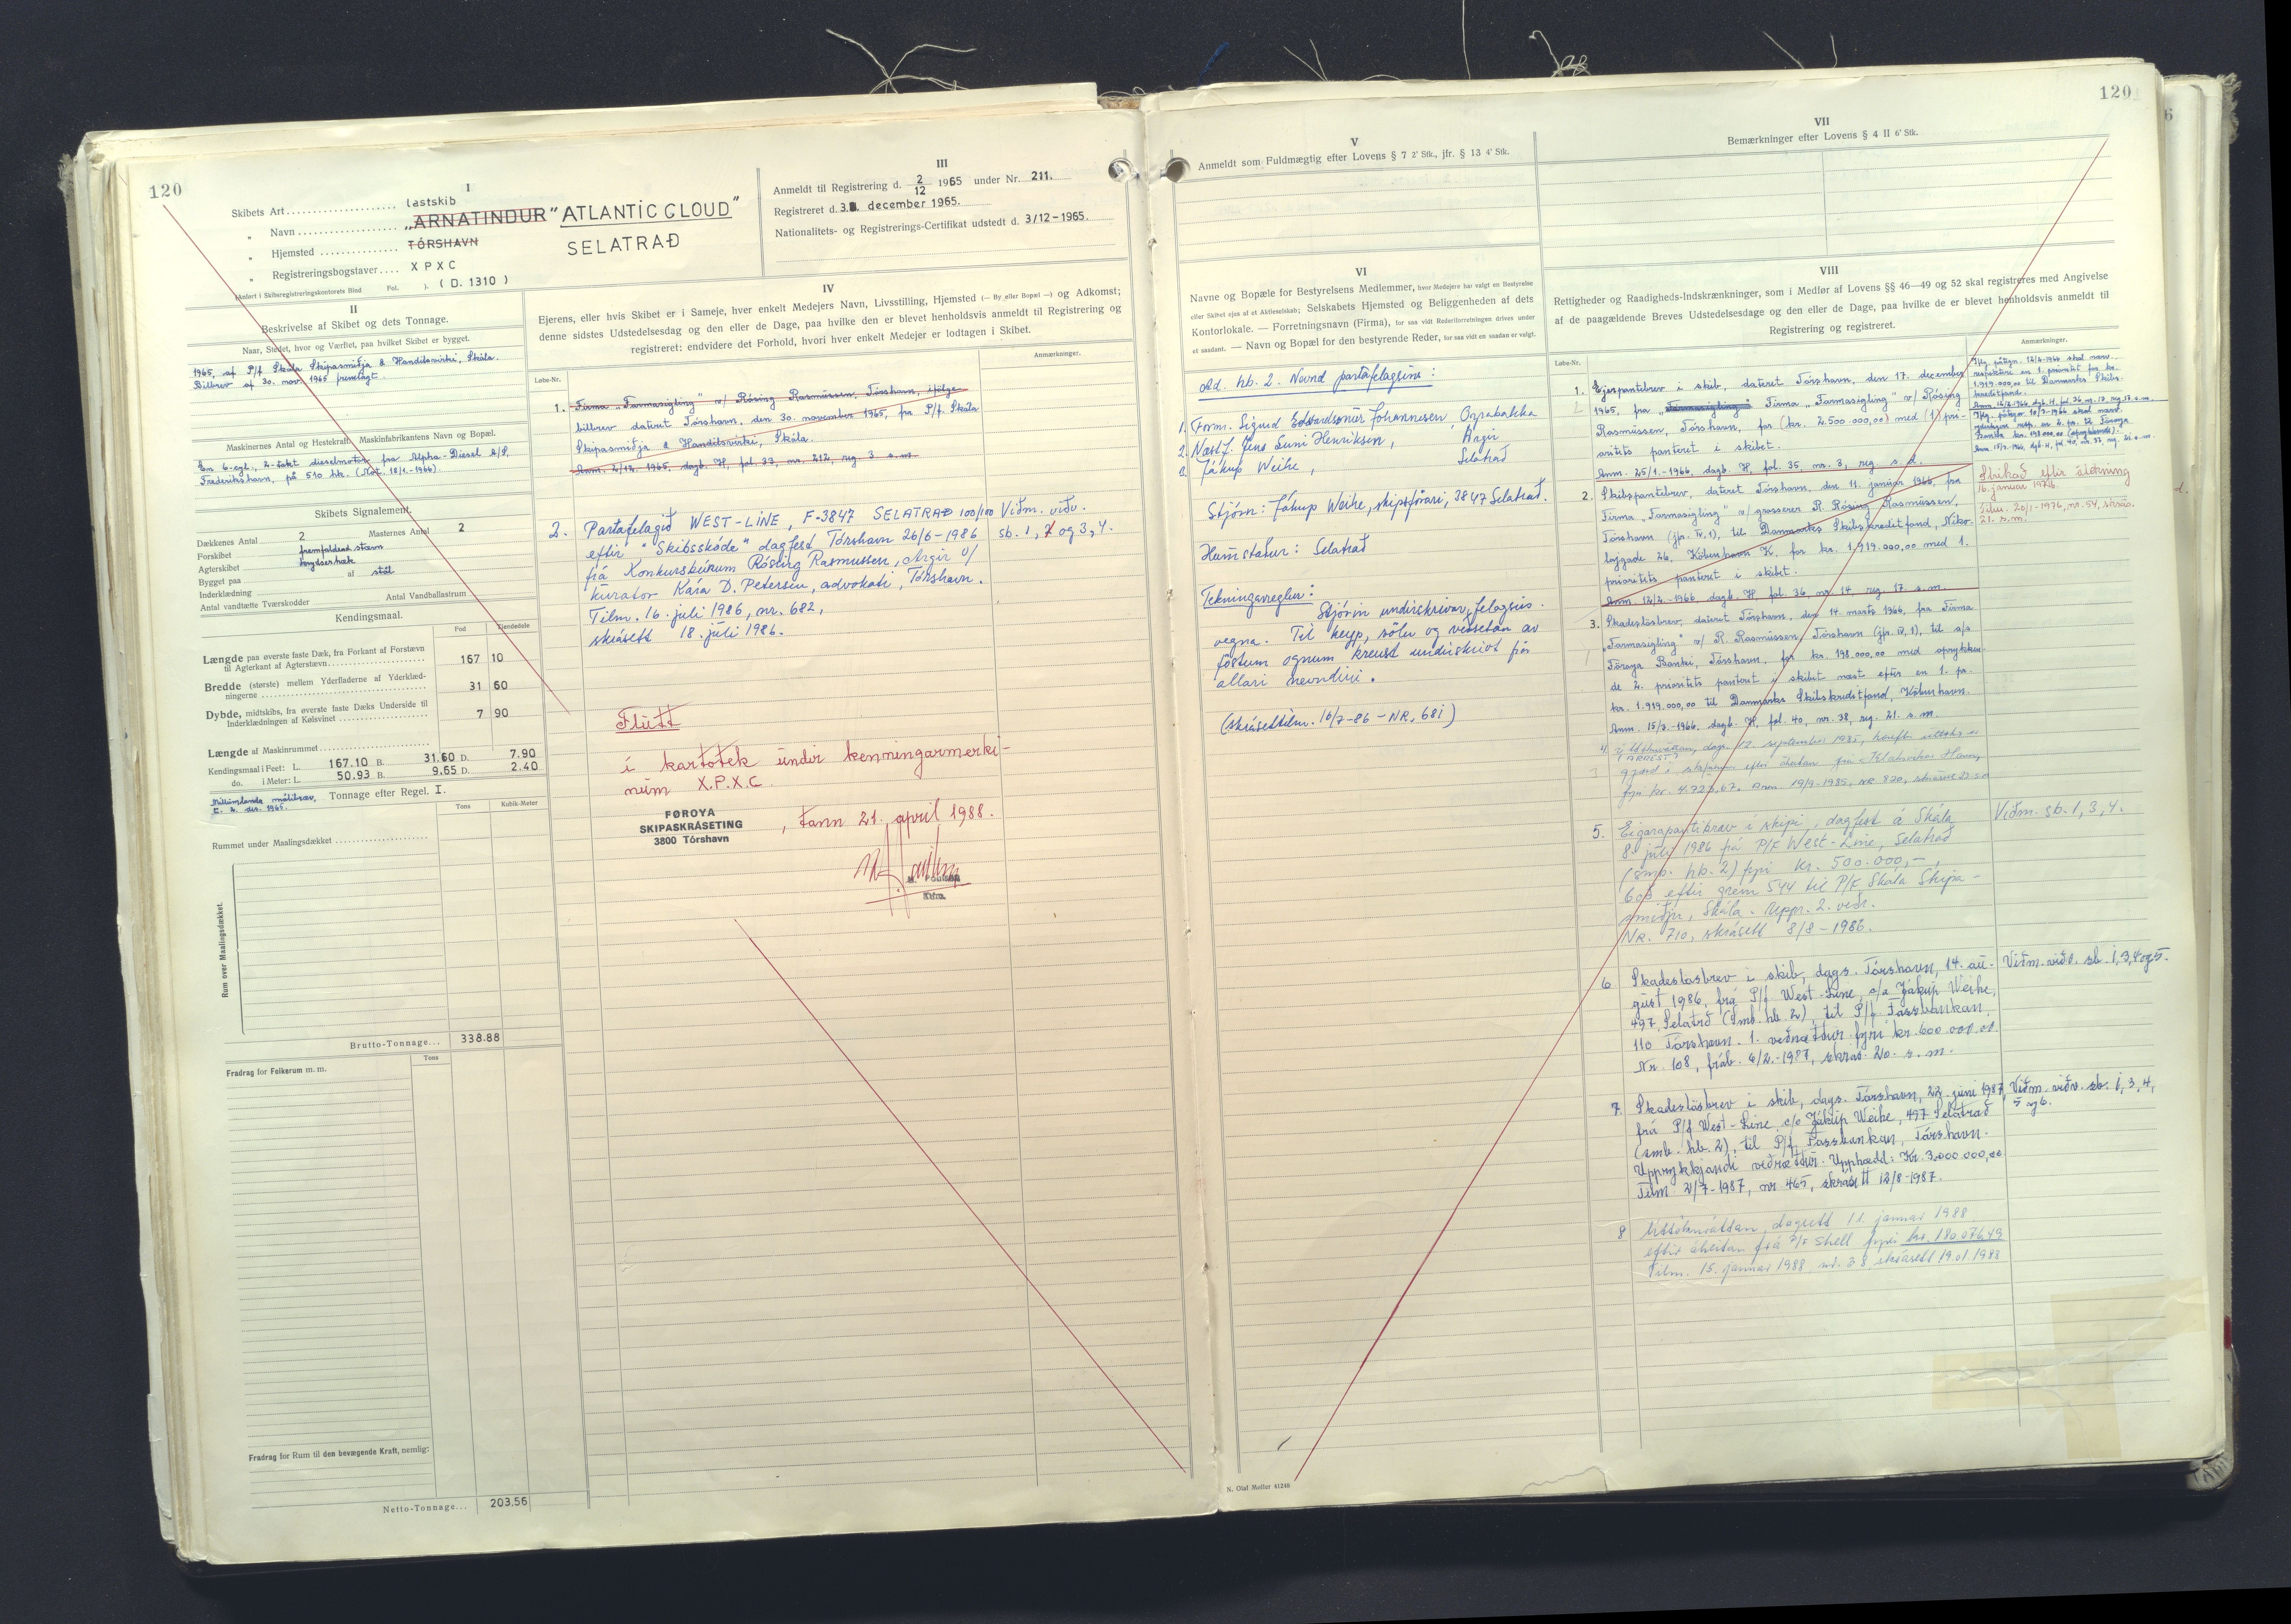 120
I
Skibets Art lastskib
" Navn „ARNATINDUR" "ATLANTIC CLOUD"
" Hjemsted TÓRSHAVN SELATRAÐ
" Registreringsbogstaver XPXC
(Anført i Skibsregistreringskontorets Bind Fol. ). (D. 1310)
III
Anmeldt til Registrering d. 2/12 1965 under Nr. 211.
Registreret d. 3. december 1965.
Nationalitets- og Registrerings-Certifikat udstedt d. 3/12-1965.
II
Beskrivelse af Skibet og dets Tonnage.
Naar, Stedet, hvor og Værftet, paa hvilket Skibet er bygget.
1965, af P/f Skála Skipasmiðja & Handilsvirki, Skála.
Bilbrev af 30. nov. 1965 fremlagt.
Maskinernes Antal og Hestekraft. Maskinfabrikantens Navn og Bopæl.
En 6-cyl., 2-takt dieselmotor fra Alpha-Diesel A/S,
Frederikshavn, på 510 hk. (Not. 18/1.-1966).
Skibets Signalement.
Dækkenes Antal 2 Masternes Antal 2
Forskibet fremfaldend stævn
Agterskibet krydserhæk
Bygget paa af stål
Inderklædning
Antal vandtætte Tværskodder Antal Vandballastrum
Kendingsmaal.
Fod Tiendedele
Længde paa øverste faste Dæk, fra Forkant af Forstævn
til Agterkant af Agterstævn 167 10
Bredde (største) mellem Yderfladerne af Yderklæd-
ningerne 31 60
Dybde, midtskibs, fra øverste faste Dæks Underside til
Inderklædningen af Kølsvinet 7 90
Længde af Maskinrummet
Kendingsmaal i Feet: L. 167.10 B. 31.60 D. 7.90
do. i Meter: L. 50.93 B. 9.65 D. 2.40
Tonnage efter Regel. I.
Tons Kubik-Meter
Rummet under Maalingsdækket
Rum over Maalingsdækket.
Brutto-Tonnage... 338.88
Tons
Fradrag for Folkerum m. m.
Fradrag for Rum til den bevægende Kraft, nemlig:
Netto-Tonnage... 203.56
IV
Ejerens, eller hvis Skibet er i Sameje, hver enkelt Medejers Navn, Livsstilling, Hjemsted (— By eller Bopæl —) og Adkomst;
denne sidstes Udstedelsesdag og den eller de Dage, paa hvilke den er blevet henholdsvis anmeldt til Registrering og
registreret; endvidere det Forhold, hvori hver enkelt Medejer er lodtagen i Skibet.
Løbe-Nr. Anmærkninger.
1. Firma „Farmasigling" v/ Rósing Rasmussen, Tórshavn, ifølge
bilbrev dateret Tórshavn, den 30. november 1965, fra P/f. Skála
Skipasmiðja & Handilsvirki, Skála.
Anm. 2/12-1965, dagb. H, fol. 33, nr. 212, reg. 3 s.m.
2. Partafelagið WEST-LINE, F-3847 SELATRAÐ 100/100 Viðm. viðv.
eftir "Skibsskøde" dagfest Tórshavn 26/6-1986 sb. 1, 2 og 3, 4.
frá Konkursbúnum Rósing Rasmussen, Argir v/
kurator Kára D. Petersen, advokati, Tórshavn.
Tilm. 16. juli 1986, nr. 682,
skrásett 18. juli 1986.
Flutt
í kartotek undir kenningarmerki-
num X.P.X.C.
FØROYA
SKIPASKRÁSETING
3800 Tórshavn
, tann 21. april 1988.
120
V
Anmeldt som Fuldmægtig efter Lovens § 7 2' Stk., jfr. § 13 4' Stk.
VII
Bemærkninger efter Lovens § 4 II 6' Stk.
VI
Navne og Bopæle for Bestyrelsens Medlemmer, hvor Medejere har valgt en Bestyrelse
eller Skibet ejes af et Aktieselskab; Selskabets Hjemsted og Beliggenheden af dets
Kontorlokale. — Forretningsnavn (Firma), for saa vidt Rederiforretningen drives under
et saadant. — Navn og Bopæl for den bestyrende Reder, for saa vidt en saadan er valgt.
Ad. hb. 2. Nevnd partafelagsins:
1. Form. Sigurd Edvardsonur Johannesen, Oyrabakka
2. Næstf. Jens Suni Henriksen, Argir
3. Jákup Weihe, Selatrað
Stjórn: Jákup Weihe, skipsførari, 3847 Selatrað.
Heimstaður: Selatrað
Tekningarreglur:
Stjórin undirskrivar felagsins
vegna. Til keyp, sølu og veðsetan av
føstum ognum krevst undirskrivt frá
allari nevndini.
(skrásett tilm. 16/7-86 – NR. 681)
VIII
Rettigheder og Raadigheds-Indskrænkninger, som i Medfør af Lovens §§ 46—49 og 52 skal registreres med Angivelse
af de paagældende Breves Udstedelsesdag og den eller de Dage, paa hvilke de er blevet henholdsvis anmeldt til
Registrering og registreret.
Løbe-Nr. Anmærkninger.
1. Ejerpantebrev i skib, dateret Tórshavn, den 17. december
1965, fra Firma „Farmasigling" v/ Rósing
Rasmussen, Tórshavn, for (kr. 2.500.000,00) med (1) pri-
oritets panteret i skibet.
Anm. 25/1.-1966, dagb. H, fol. 35, nr. 3, reg. s. d.
Iflg. påtegn. 12/2-1966 skal nærv.
respektere en 1. prioritet for kr.
1.919.000,00 til Danmarks Skibs-
kreditfond.
2. Skibspantebrev, dateret Tórshavn, den 11. januar 1966, fra
Firma „Farmasigling" v/ grosserer R. Rósing Rasmussen,
Tórshavn (jfr. IV,1), til Danmarks Skibskreditfond, Niko-
lajgade 26, København K, for kr. 1.919.000,00 med 1.
prioritets panteret i skibet.
Anm. 12/2.-1966 dagb. H fol. 36 nr. 14, reg. 17. s.m.
Strikað eftir átekning
16. januar 1976.
Tilm. 20/1-1976, nr. 54, strikað
21. s.m.
3. Skadesløsbrev, dateret Tórshavn, den 14. marts 1966, fra Firma
„Farmasigling" v/ R. Rasmussen, Tórshavn (jfr. IV,1), til a/s
Føroya Banki, Tórshavn, for kr. 198.000,00 med oprykken-
de 2. prioritets panteret i skibet næst efter en 1. pr.
kr. 1.919.000,00 til Danmarks Skibskreditfond, København.
Anm. 15/3.-1966. dagb. H, fol. 40, nr. 38, reg. 21. s.m.
4. (ARREST)
fyri kr. 4.723,67. Anm. 19/9-1985, NR 820,
5. Eigarapantibræv í skipi, dagfest á Skála
8. juli 1986 frá P/F West-Line, Selatrað
(smb. hb. 2) fyri kr. 500.000,-,
boð eftir grein 544 til P/F Skála Skipa-
smiðju, Skála. Uppr. 2. veðr.
NR. 710, skrásett 8/8-1986.
Viðm. sb. 1, 3, 4.
6 Skadesløsbrev í skib, dags. Tórshavn, 14. au-
gust 1986, frá P/f West-Line, c/o Jákup Weihe,
497 Selatrað (smb. hb. 2), til P/f Føssbankan,
110 Tórshavn. 1. veðrættur fyri kr. 600.000,00.
Nr. 108, fráb. 6/2.-1987, skrás. 20. s.m.
Viðm. viðv. sb. 1, 3, 4 og 5.
7. Skadesløsbrev í skib, dags. Tórshavn, 22. juni 1987,
frá P/f West-Line, c/o Jákup Weihe, 497 Selatrað
(smb. hb. 2), til P/f Føssbankan, Tórshavn.
Upprykkjandi veðrættur. Upphædd: Kr. 3.000.000,00
Tilm 2/7-1987, nr 465, skrásett 12/8-1987.
Viðm. viðv. sb. 1, 3, 4,
5 og 6.
8 dagsett 11. januar 1988
eftir áheitan frá P/F Shell fyri kr. 180.076,49
Tilm. 15. januar 1988, nr. 38 skrásett 19.01 1988
N. Olaf Møller 41248